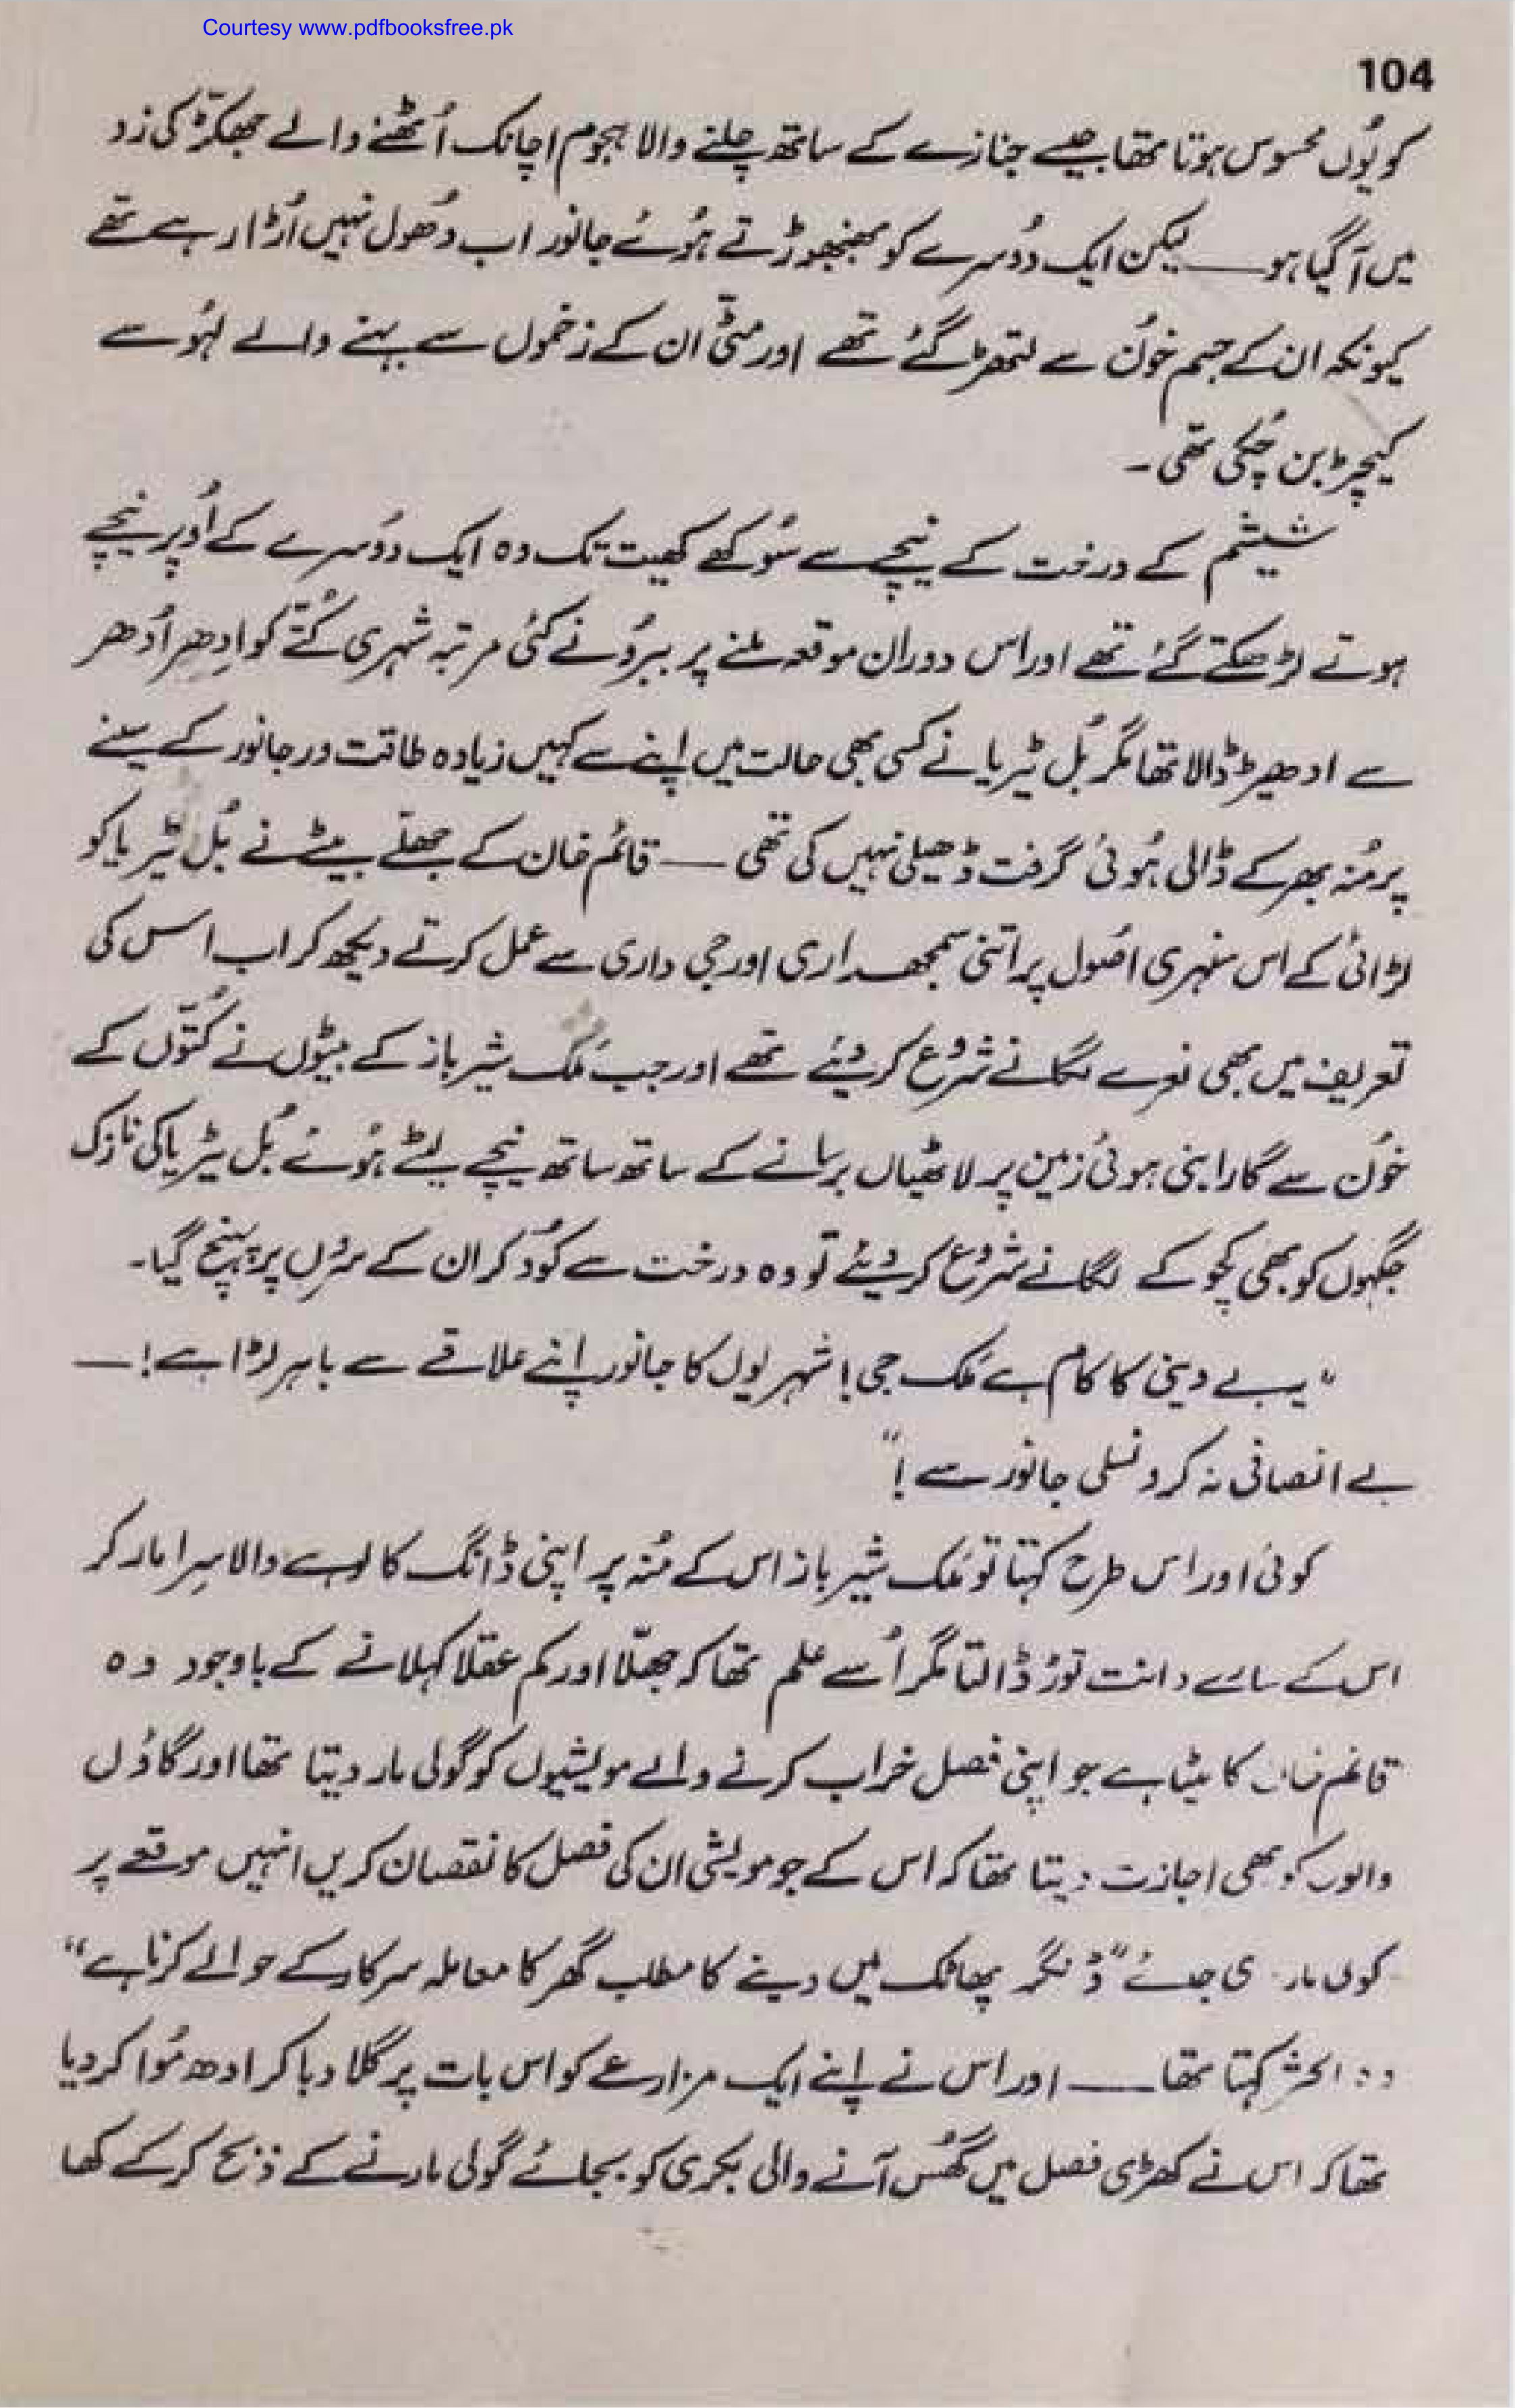 Courtesy www.pdfbooksfree.pk
104
کو یُوں محسوس ہوتا تھا جیسے جنازے کے ساتھ چلنے والا ہجوم اچانک اُٹھنے والے جھکّڑ کی زد
میں آ گیا ہو ــــ لیکن ایک دُوسرے کو بھنبھوڑتے ہُوئے جانور اب دُھول نہیں اُڑا رہے تھے
کیونکہ ان کے جسم خوُن سے لتھڑ گئے تھے اور مٹّی ان کے زخموں سے بہنے والے لہُو سے
کیچڑ بن چُکی تھی۔
شیشم کے درخت کے نیچے سے سُوکھے کھیت تک وہ ایک دوُسرے کے اُوپر نیچے
ہوتے لڑھکتے گئے تھے اور اس دوران موقعہ ملنے پر ببرُو نے کئی مرتبہ شہری کُتّے کو اِدھر اُدھر
سے ادھیڑ ڈالا تھا مگر بُل ٹیریا نے کسی بھی حالت میں اپنے سے کہیں زیادہ طاقت ور جانور کے سینے
پر مُنہ بھر کے ڈالی ہُوئی گرفت ڈھیلی نہیں کی تھی ــــ قائم خان کے جھلّے بیٹے نے بُل ٹیریا کو
لڑائی کے اس سنہری اصُول پر اتنی سمجھداری اور جی داری سے عمل کرتے دیکھ کر اب اس کی
تعریف میں بھی نعرے لگانے شروُع کر دیئے تھے اور جب مَلک شیر باز کے بیٹوں نے کُتّوں کے
خوُن سے گارا بنی ہوئی زمین پر لاٹھیاں برسانے کے ساتھ ساتھ نیچے لیٹے ہُوئے بُل ٹیریا کی نازک
جگہوں کو بھی کچوکے لگانے شروُع کر دیئے تو وہ درخت سے کُود کر ان کے سروُں پر پہنچ گیا۔
"یہ بے دینی کا کام ہے مَلک جی! شہریوں کا جانور اپنے علاقے سے باہر لڑا ہے! ــــ
بے انصافی نہ کرو نسلی جانور سے!"
کوئی اور اس طرح کہتا تو مَلک شیر باز اس کے مُنہ پر اپنی ڈانگ کا لوہے والا سِرا مار کر
اس کے سارے دانت توڑ ڈالتا مگر اُسے علم تھا کہ جھلّا اور کم عقلا کہلانے کے باوجود وہ
قائم خان کا بیٹا ہے جو اپنی فصل خراب کرنے والے مویشیوں کو گولی مار دیتا تھا اور گاؤں
والوں کو بھی اجازت دیتا تھا کہ اس کے جو مویشی ان کی فصل کا نقصان کریں انہیں موقعے پر
گولی مار دی جائے "ڈنگر پھاٹک میں دینے کا مطلب گھر کا معاملہ سرکار کے حوالے کرنا ہے"
وہ اکثر کہتا تھا ــــ اور اس نے اپنے ایک مزارعے کو اس بات پر گلا دبا کر ادھ مُوا کر دیا
تھا کہ اس نے کھڑی فصل میں گھُس آنے والی بکری کو بجائے گولی مارنے کے ذبح کر کے کھا